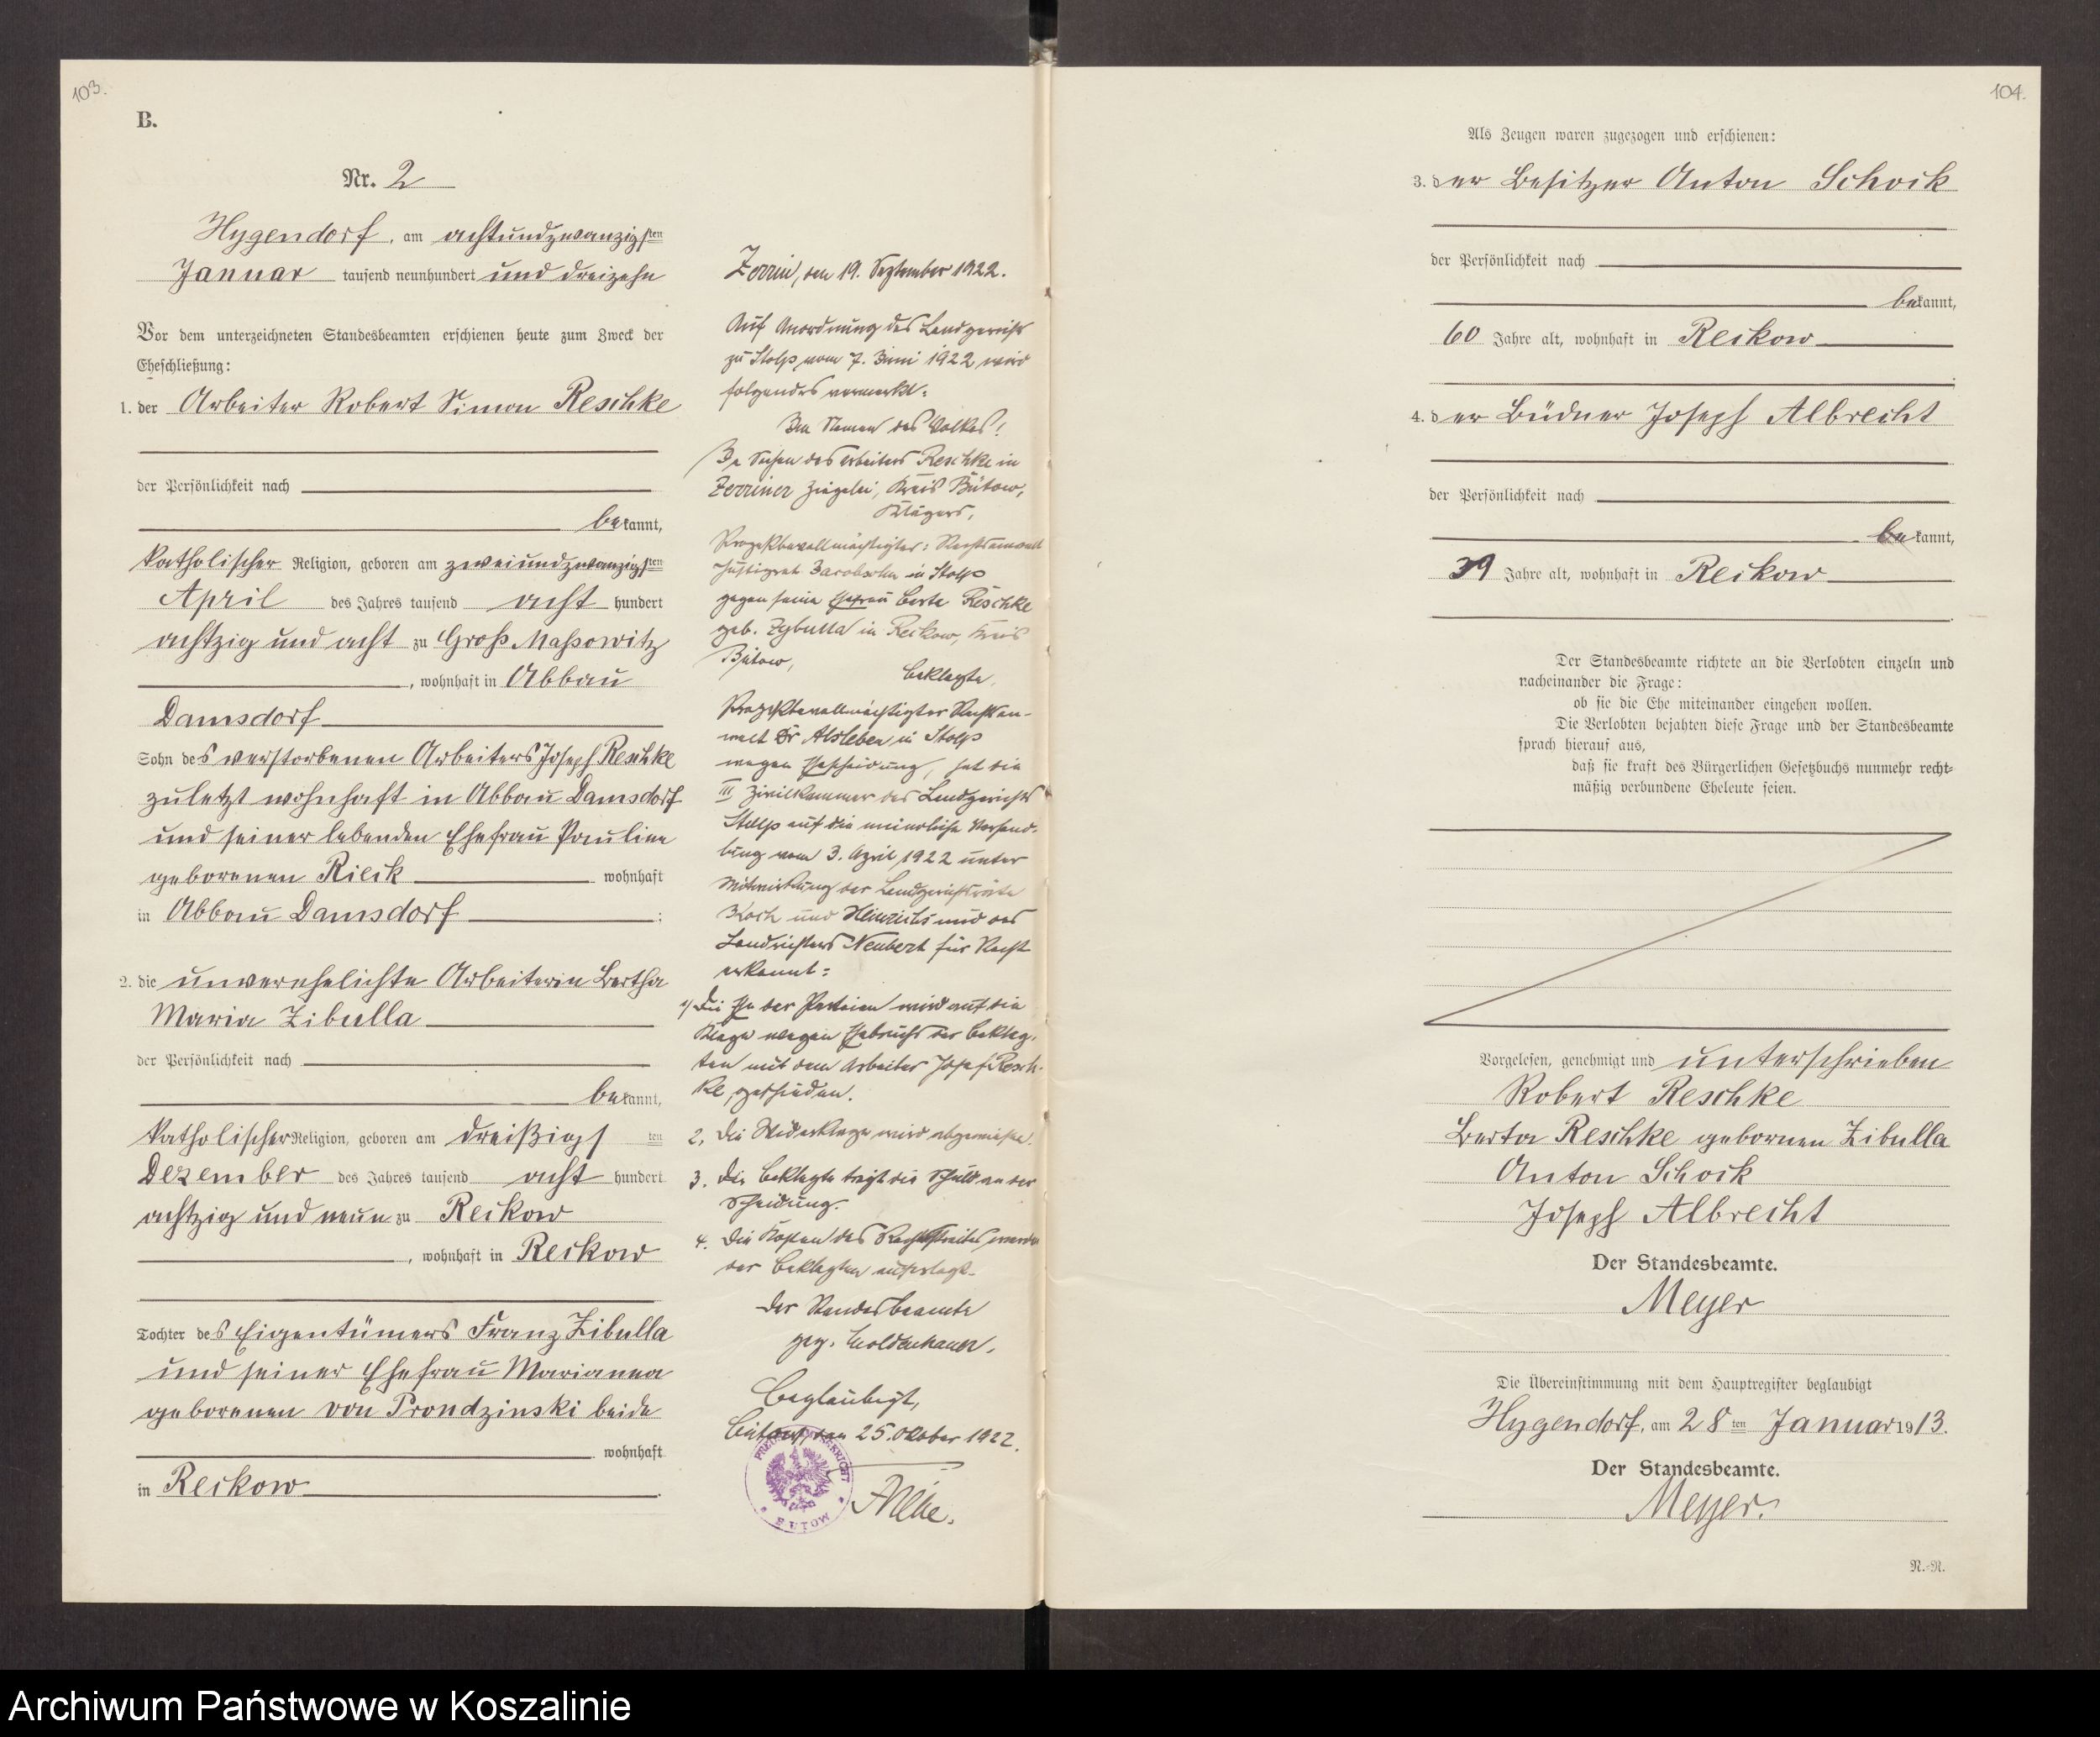 103.
B.
Nr. 2
Hygendorf, am achtundzwanzigsten
Januar tausend neunhundert und dreizehn
Vor dem unterzeichneten Standesbeamten erschienen heute zum Zweck der
Eheschließung:
1. der Arbeiter Robert Simon Reschke
der Persönlichkeit nach
bekannt,
katholischer Religion, geboren am zweiundzwanzigsten
April des Jahres tausend acht hundert
achtzig und acht zu Groß Massowitz
, wohnhaft in Abbau
Damsdorf
Sohn des verstorbenen Arbeiters Joseph Reschke
zuletzt wohnhaft in Abbau Damsdorf
und seiner lebenden Ehefrau Pauline
geborenen Rieck wohnhaft
in Abbau Damsdorf :
2. die unverehelichte Arbeiterin Bertha
Maria Zibulla
der Persönlichkeit nach
bekannt,
katholischer Religion, geboren am dreißigsten
Dezember des Jahres tausend acht hundert
achtzig und neun zu Reckow
, wohnhaft in Reckow
Tochter des Eigentümers Franz Zibulla
und seiner Ehefrau Marianna
geborenen von Prondzinski beide
wohnhaft
in Reckow
Zerrin, den 19. September 1922.
Auf Anordnung des Landgerichts
zu Stolp vom 7. Juni 1922 wird
folgendes vermerkt:
Im Namen des Volkes!
In Sachen des Arbeiters Reschke in
Zerriner Ziegelei, Kreis Bütow,
Klägers,
Prozeßbevollmächtigter: Rechtsanwalt
Justizrat Jacobsohn in Stolp
gegen seine Ehefrau Berta Reschke
geb. Zybulla in Reckow, Kreis
Bütow,
Beklagte,
Prozeßbevollmächtigter Rechtsan-
walt Dr Alsleben in Stolp
wegen Ehescheidung, hat die
III Zivilkammer des Landgerichts
Stolp auf die mündliche Verhand-
lung vom 3. April 1922 unter
Mitwirkung der Landgerichtsräte
Koch und Heinrichs und des
Landrichters Neubert für Recht
erkannt:
1) Die Ehe der Parteien wird auf die
Klage wegen Ehebruchs der Beklag-
ten mit dem Arbeiter Josef Resch-
ke, geschieden.
2. Die Widerklage wird abgewiesen.
3. Die Beklagte trägt die Schuld an der
Scheidung.
4. Die Kosten des Rechtsstreites werden
der Beklagten auferlegt.
Der Standesbeamte
gez. Moldenhauer.
Beglaubigt,
Bütow, den 25. Oktober 1922.
BUTOW
104.
Als Zeugen waren zugezogen und erschienen:
3. der Besitzer Anton Schock
der Persönlichkeit nach
bekannt,
60 Jahre alt, wohnhaft in Reckow
4. der Büdner Joseph Albrecht
der Persönlichkeit nach
bekannt,
39 Jahre alt, wohnhaft in Reckow
Der Standesbeamte richtete an die Verlobten einzeln und
nacheinander die Frage:
ob sie die Ehe miteinander eingehen wollen.
Die Verlobten bejahten diese Frage und der Standesbeamte
sprach hierauf aus,
daß sie kraft des Bürgerlichen Gesetzbuchs nunmehr recht-
mäßig verbundene Eheleute seien.
Vorgelesen, genehmigt und unterschrieben
Robert Reschke
Berta Reschke gebornen Zibulla
Anton Schock
Joseph Albrecht
Der Standesbeamte.
Meyer
Die Übereinstimmung mit dem Hauptregister beglaubigt
Hygendorf, am 28ten Januar 1913.
Der Standesbeamte.
Meyer.
N.-N.
Archiwum Państwowe w Koszalinie